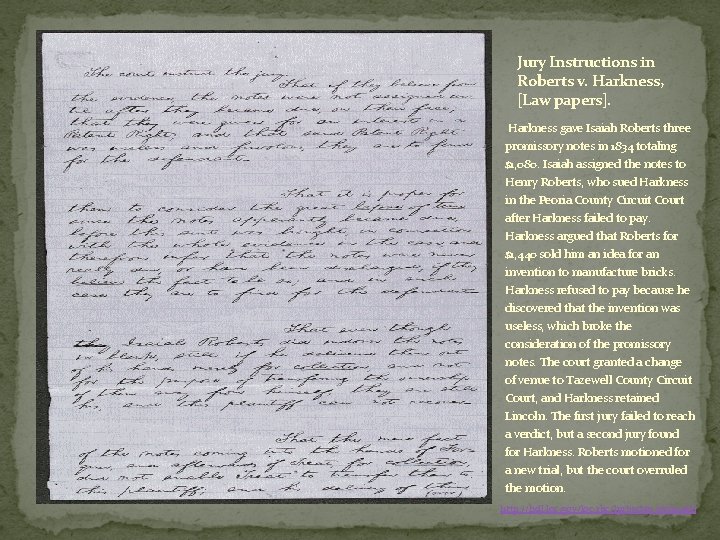 The court instruct the jury.
That if they believe from
the evidence, the notes were not assigned un
til after they became due, on their face,
that they were given for an interest in a
Patent Right, and that said Patent Right
was useless and frivolous, they are to find
for the defendant
That it is proper for
them to consider the great lapse of time
since the notes apparently became due,
before this suit was brought, in connection
with the whole evidence in the case and
therefrom infer that the notes were
or have been discharged if they
believe the fact to be so, and in such
case they are to find for the defendant
That even though
Isaiah Roberts did indorse the notes
in blank, still if he delivered them out
of his hands merely for collection, and not
for the purpose of transfering the ownership
of them away from himself, they are still
his, and this plaintiff can not recover
That the mere fact
of the notes coming into the hands of
and afterwards of for collection,
did not enable to transfer them to
this plaintiff, and his of them
(over)
Jury Instructions in
Roberts v. Harkness,
[Law papers].
Harkness gave Isaiah Roberts three
promissory notes in 1834 totaling
$1,080. Isaiah assigned the notes to
Henry Roberts, who sued Harkness
in the Peoria County Circuit Court
after Harkness failed to pay.
Harkness argued that Roberts for
$1,440 sold him an idea for an
invention to manufacture bricks.
Harkness refused to pay because he
discovered that the invention was
useless, which broke the
consideration of the promissory
notes. The court granted a change
of venue to Tazewell County Circuit
Court, and Harkness retained
Lincoln. The first jury failed to reach
a verdict, but a second jury found
for Harkness. Roberts motioned for
a new trial, but the court overruled
the motion.